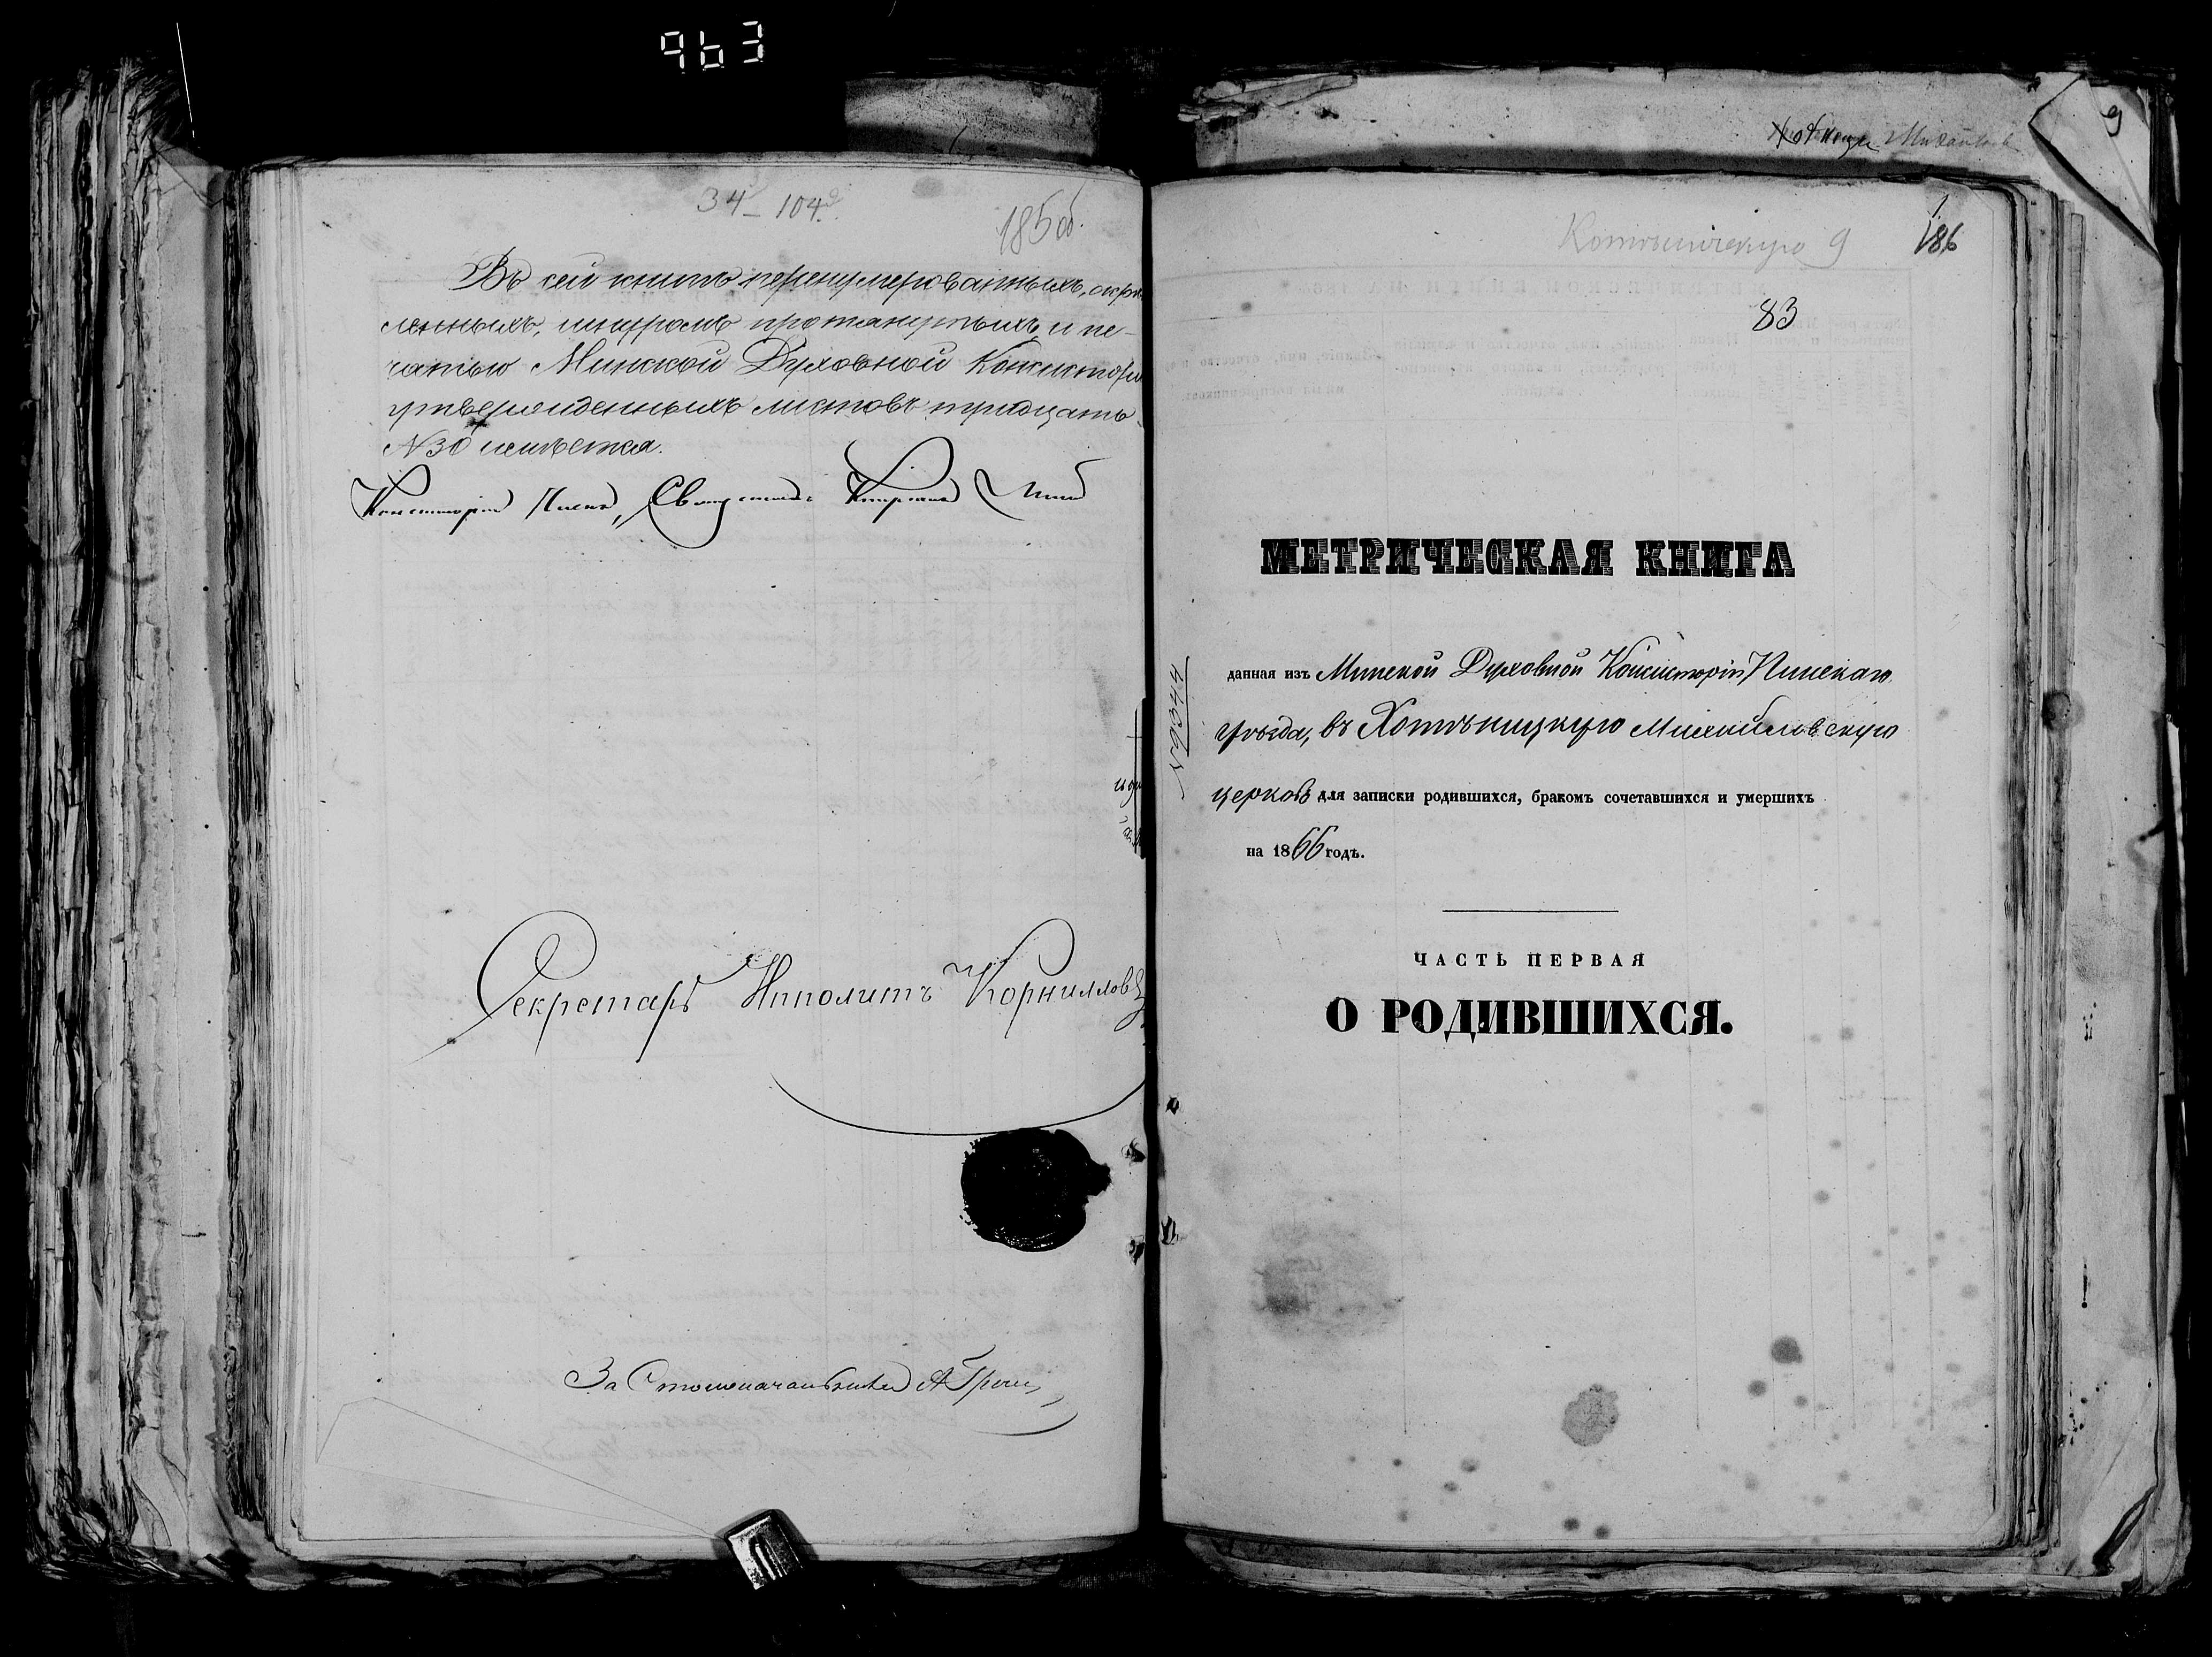 963
34 – 104
185 об.
Въ сей книгѣ перенумерованныхъ, скрѣп
ленныхъ, шнуромъ протянутыхъ и пе-
чатью Минской Духовной Консисторіи
утвержденныхъ листовъ тридцать
№ 30 имѣется.
Консисторіи Членъ, Священникъ
Секретарь Ипполитъ Корниллов
За Столоначальника А
Михайловск
9
9
1
186
83
МЕТРИЧЕСКАЯ КНИГА
данная изъ Минской Духовной Консисторіи Пинскаго
уѣзда, въ Хотѣницкую Михайловскую
церковь для записки родившихся, бракомъ сочетавшихся и умершихъ
на 1866 годъ.
ЧАСТЬ ПЕРВАЯ
О РОДИВШИХСЯ.